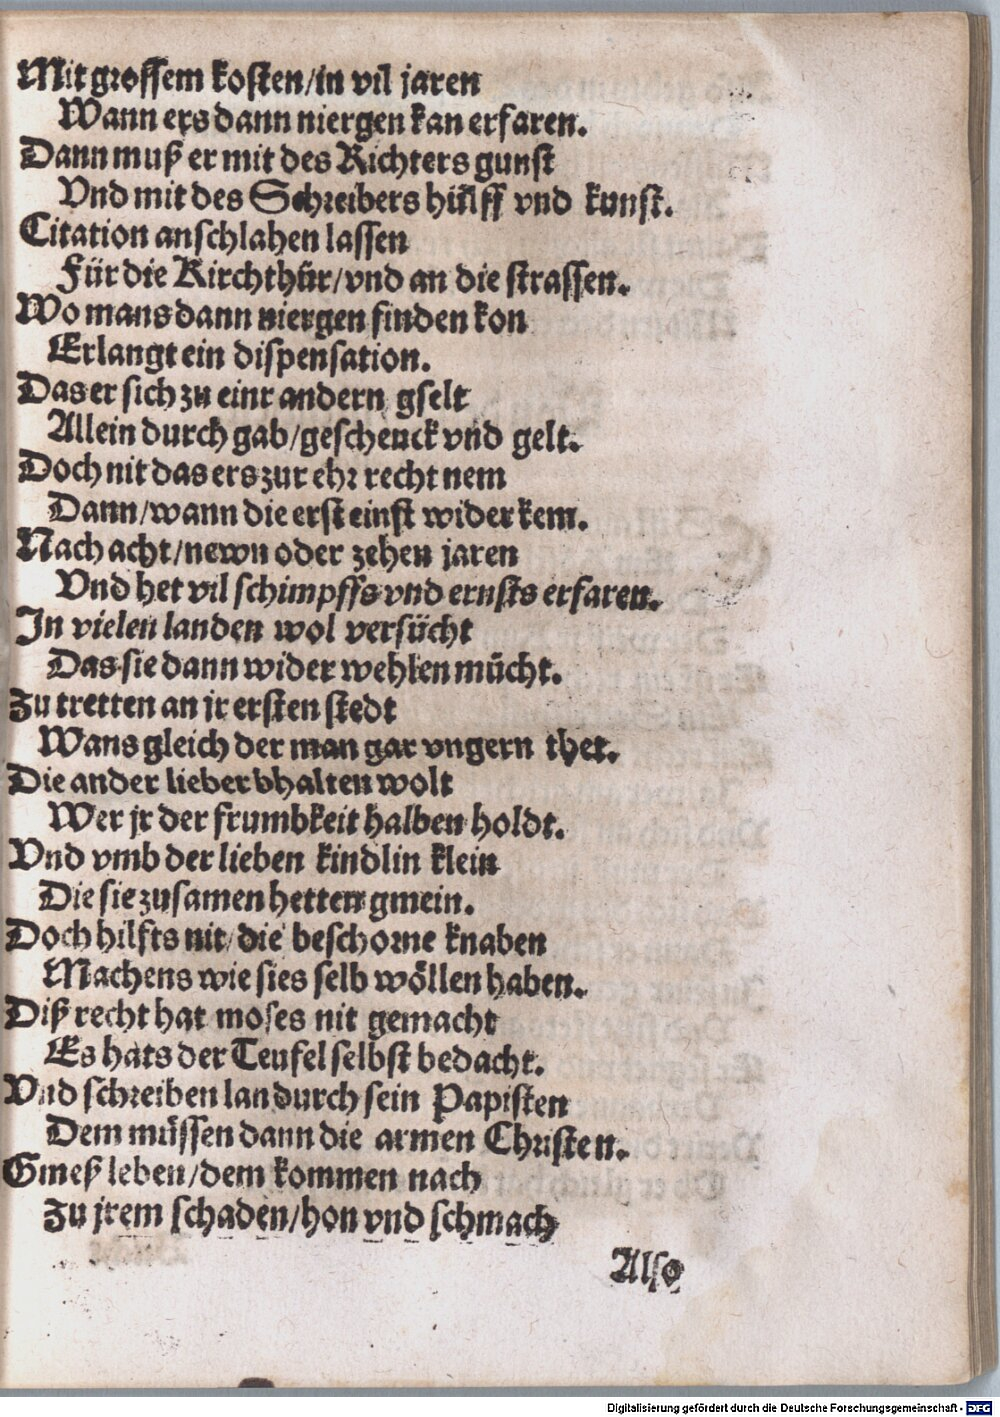 Mit grossem kosten/in vil jaren
Wann ers dann niergen kan erfaren.
Dann muß er mit des Richters gunst
Vnd mit des Schreibers hülff vnd kunst.
Citation anschlahen lassen
Für die Kirchthür/vnd an die strassen.
Wo mans dann niergen finden kon
Erlangt ein dispensation.
Das er sich zu einr andern gselt
Allein durch gab/geschenck vnd gelt.
Doch nit das ers zur ehr recht nem
Dann/wann die erst einst wider kem.
Nach acht/newn oder zehen jaren
Vnd het vil schimpffs vnd ernsts erfaren.
In vielen landen wol versücht
Das sie dann wider wehlen mücht.
Zu tretten an jr ersten stedt
Wans gleich der man gar vngern thet.
Die ander lieber bhalten wolt
Wer jr der frumbkeit halben holdt.
Vnd vmb der lieben kindlin klein
Die sie zusamen hetten gmein.
Doch hilfts nit/die beschorne knaben
Machens wie sies selb wöllen haben.
Diß recht hat moses nit gemacht
Es hats der Teufel selbst bedacht.
Vnd schreiben lan durch sein Papisten
Dem müssen dann die armen Christen.
Gmeß leben/dem kommen nach
Zu jrem schaden/hon vnd schmach
Also
Digitalisierung gefördert durch die Deutsche Forschungsgemeinschaft - DFG